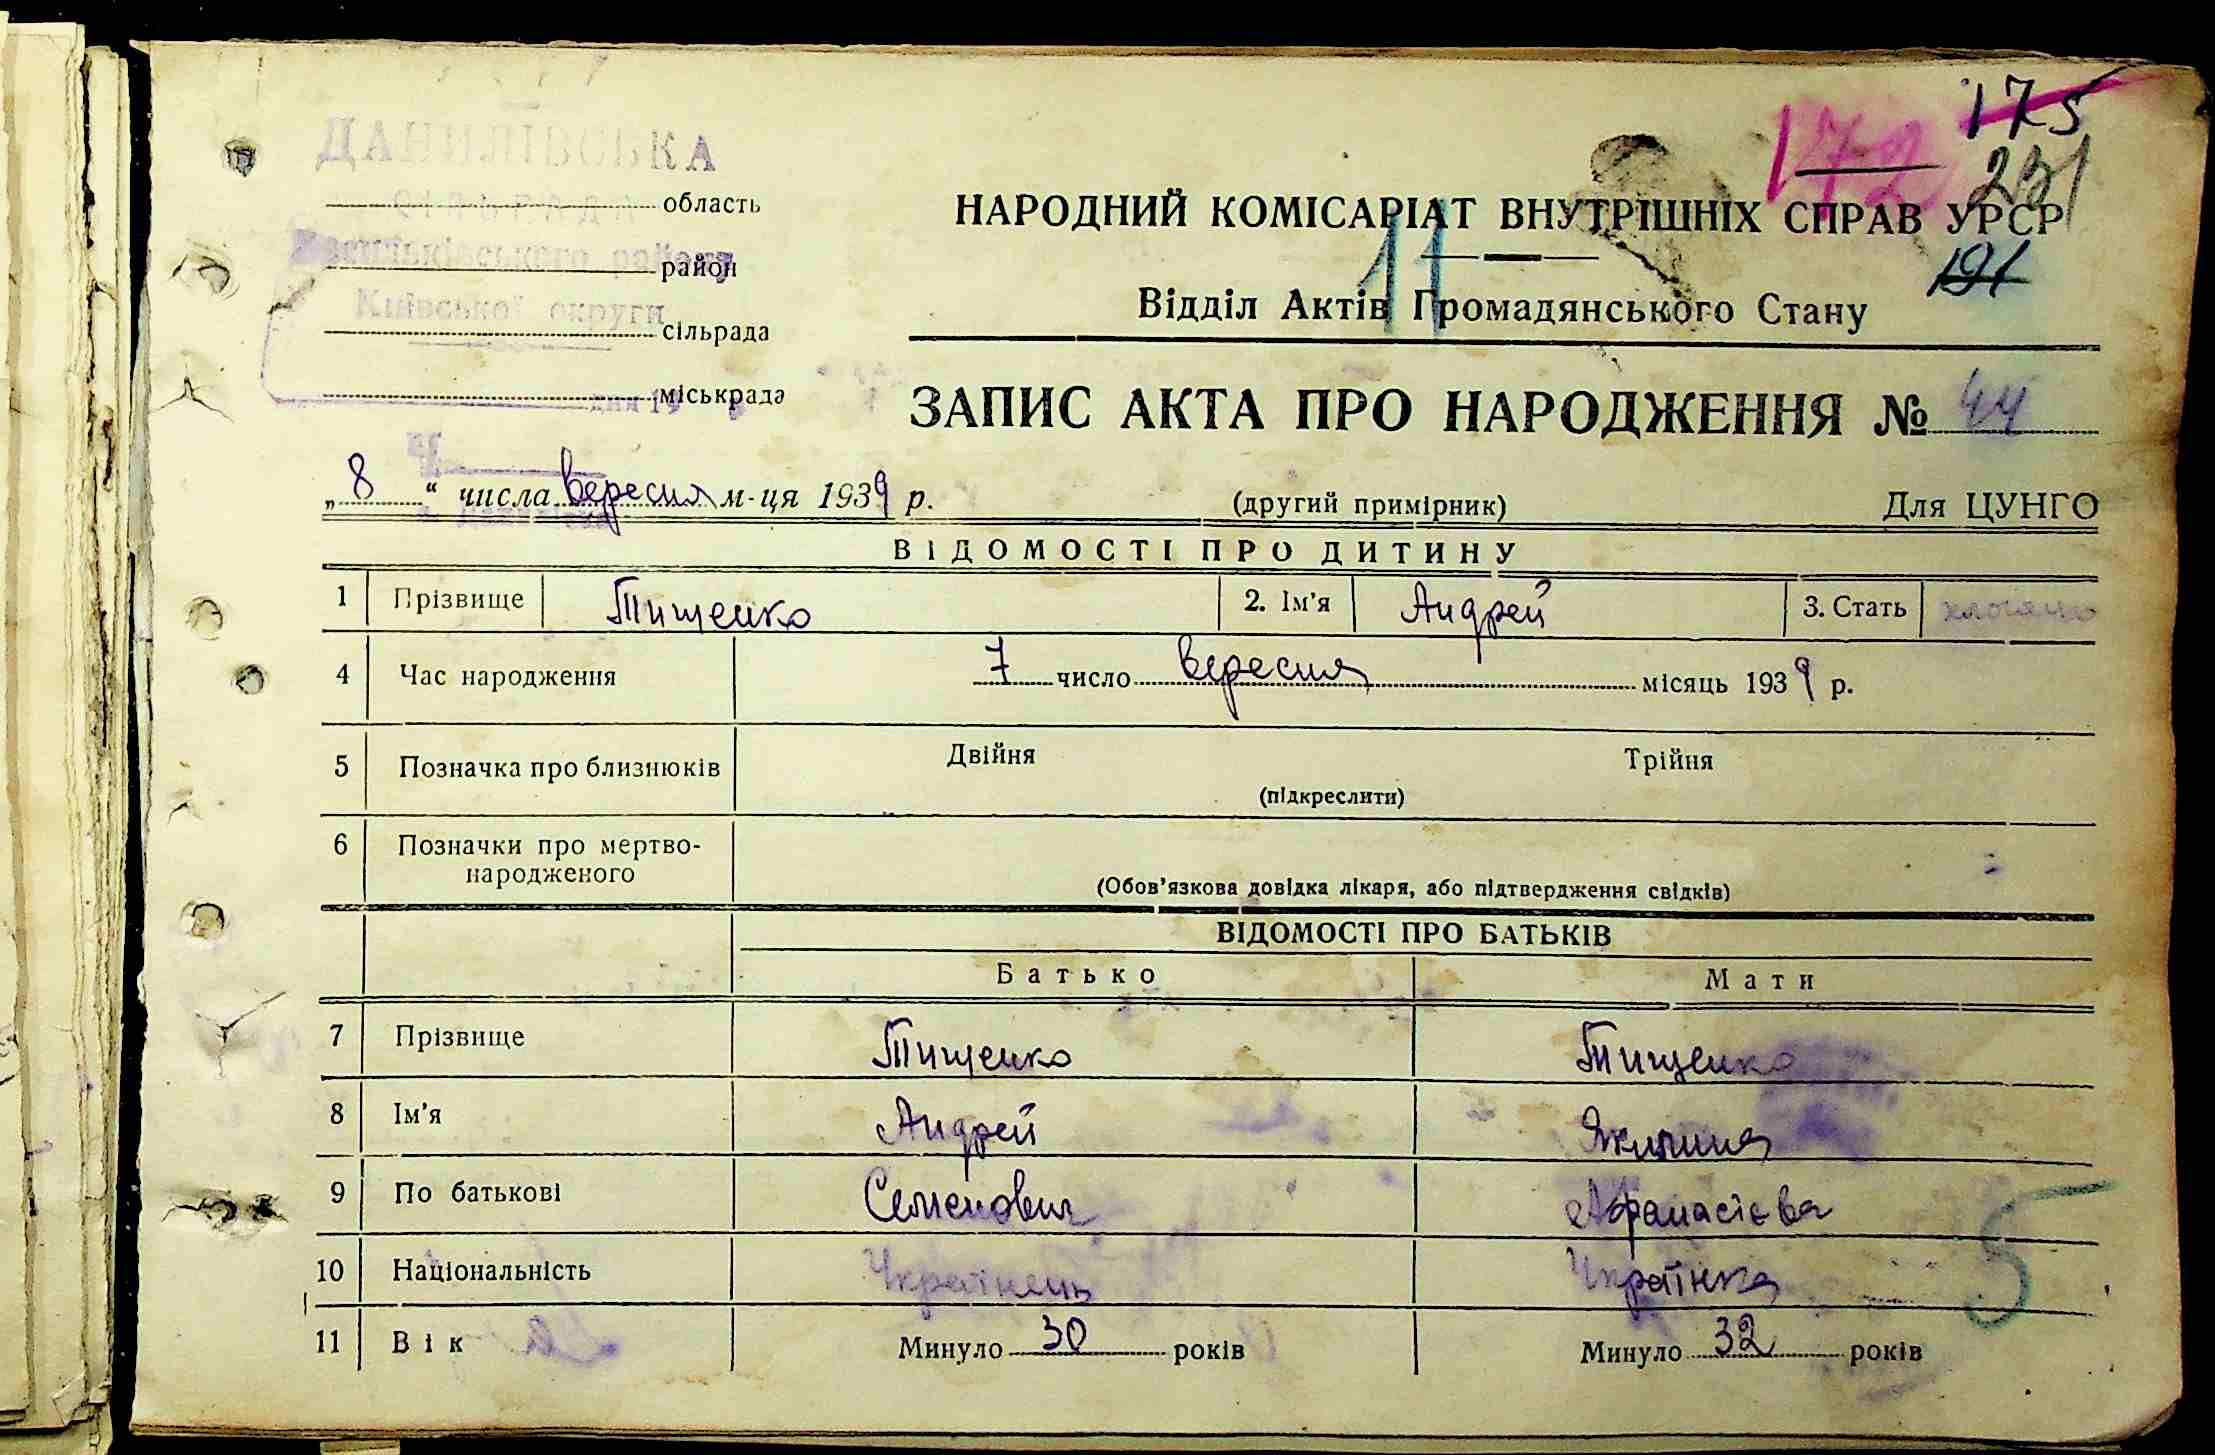 175
172
231
191
11
ДАНИЛІВСЬКА
СІЛЬРАДА
Васильківського району
Київської округи
область
район
сільрада
міськрада
НАРОДНИЙ КОМІСАРІАТ ВНУТРІШНІХ СПРАВ УРСР
Відділ Актів Громадянського Стану
ЗАПИС АКТА ПРО НАРОДЖЕННЯ № 44
„8“ числа вересня м-ця 1939 р. (другий примірник) Для ЦУНГО
ВІДОМОСТІ ПРО ДИТИНУ
1 Прізвище Тищенко 2. Ім'я Андрей 3. Стать хлопчик
4 Час народження 7 число вересня місяць 1939 р.
5 Позначка про близнюків Двійня Трійня
(підкреслити)
6 Позначки про мертво-
народженого
(Обов'язкова довідка лікаря, або підтвердження свідків)
ВІДОМОСТІ ПРО БАТЬКІВ
Батько Мати
7 Прізвище Тищенко Тищенко
8 Ім'я Андрей
9 По батькові Семенович Афанасієва
10 Національність Українець Українка
5
11 Вік Минуло 30 років Минуло 32 років